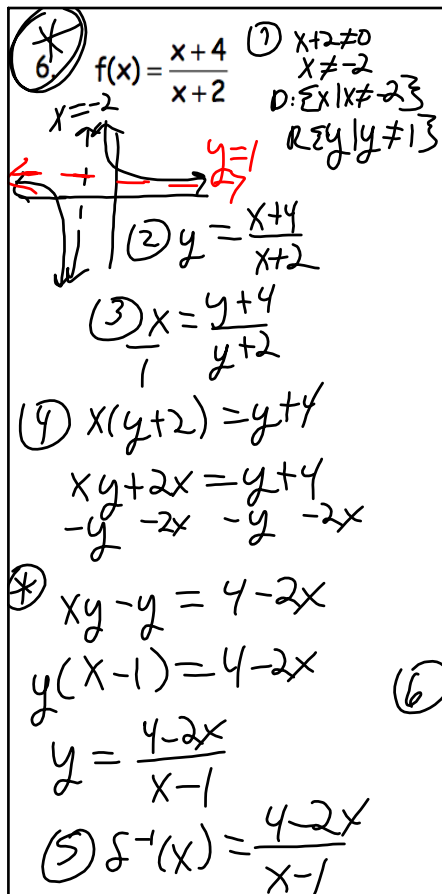 6. f(x) = (x+4)/(x+2)
① x+2≠0
x≠-2
D:{x|x≠-2}
R{y|y≠1}
x=-2
y=1
② y = (x+4)/(x+2)
③ x/1 = (y+4)/(y+2)
④ x(y+2) = y+4
xy+2x = y+4
-y -2x -y -2x
* xy-y = 4-2x
y(x-1) = 4-2x
⑥
y = (4-2x)/(x-1)
⑤ f⁻¹(x) = (4-2x)/(x-1)